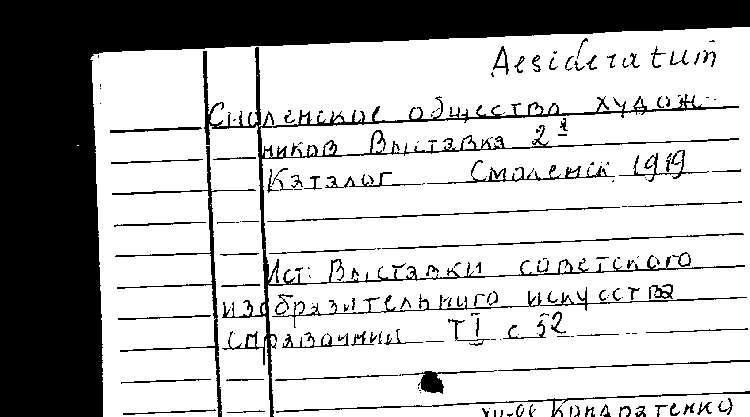 Desideratum
Смоленское общество худож-
ников Выставка 2я
Каталог Смоленск 1919
Ист: Выставки советского
изобразительного искусства
справочник Т I с 52
Кондратенко